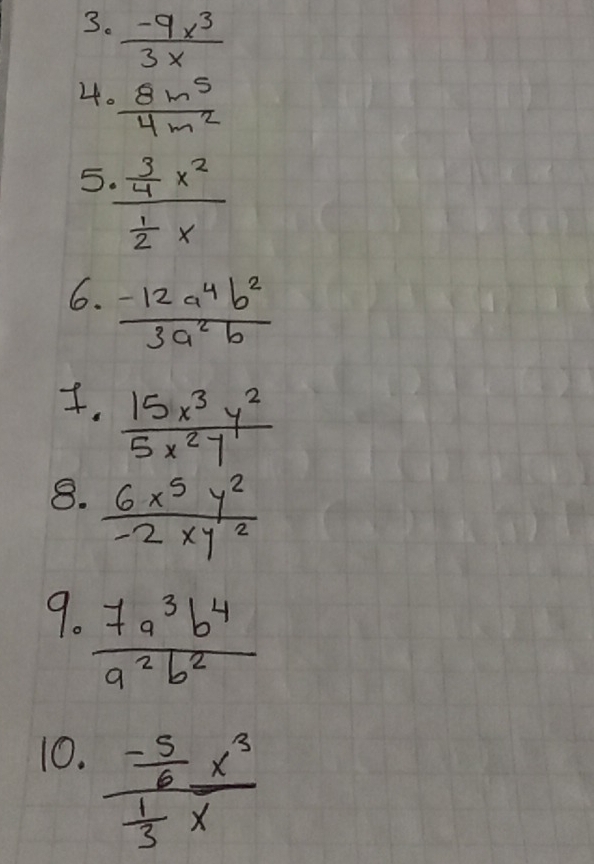 3. -9x³
3x
4. 8m⁵
4m²
5. 3/4 x²
1/2 x
6. -12a⁴b²
3a²b
7. 15x³y²
5x²y
8. 6x⁵y²
-2xy²
9. 7a³b⁴
a²b²
10. -5/6 x³
1/3 x